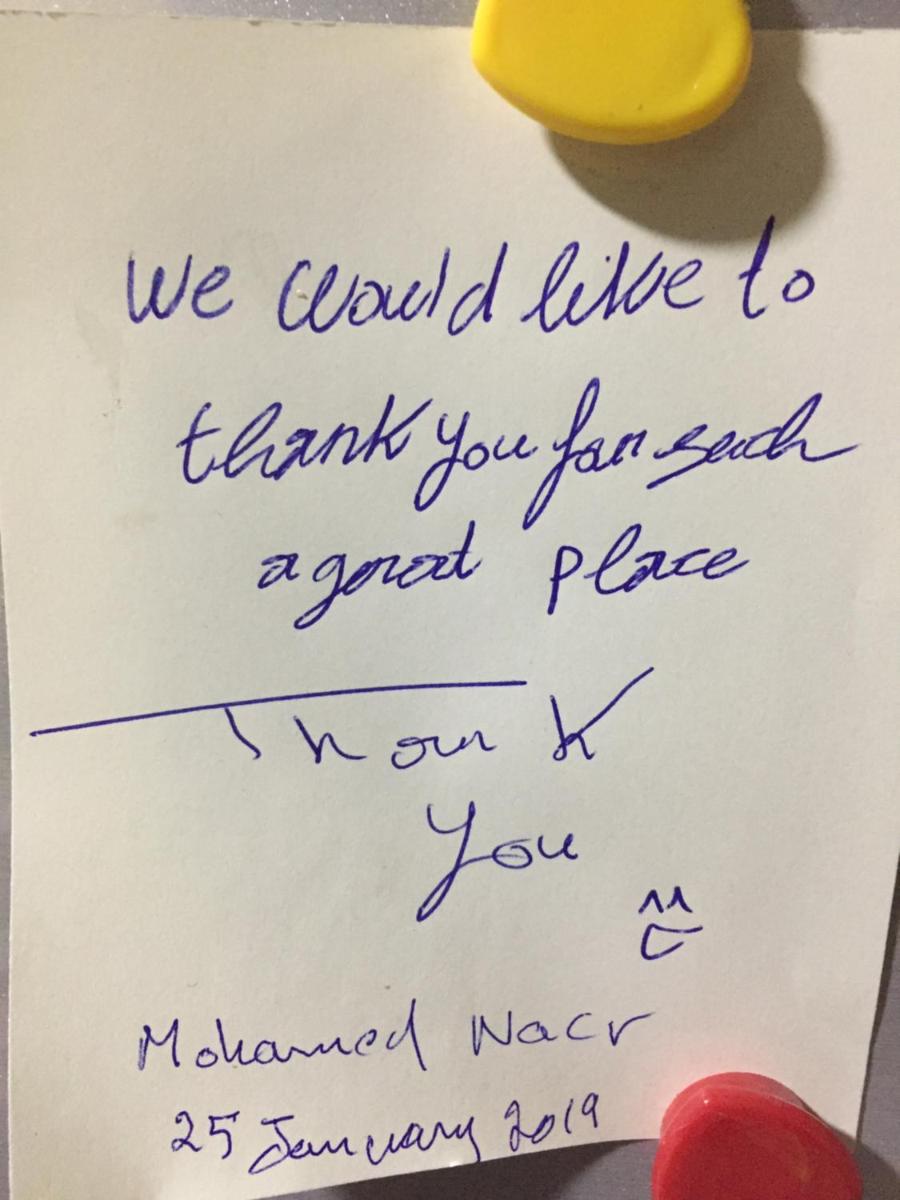 We would like to
thank you for such
a great place
Thank
You
Mohamed Nacr
25 January 2019